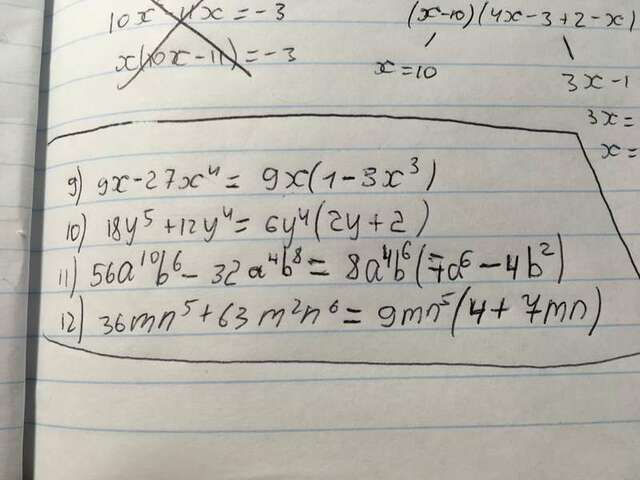 10x 11x = -3
(x-10)(4x-3+2-x)
x(10x-11) = -3
x=10
3x-1
3x=
x=
9) 9x-27x⁴ = 9x(1-3x³)
10) 18y⁵+12y⁴ = 6y⁴(2y+2)
11) 56a¹⁰b⁶ - 32a⁴b⁸ = 8a⁴b⁶(7a⁶-4b²)
12) 36mn⁵+63m²n⁶ = 9mn⁵(4+7mn)